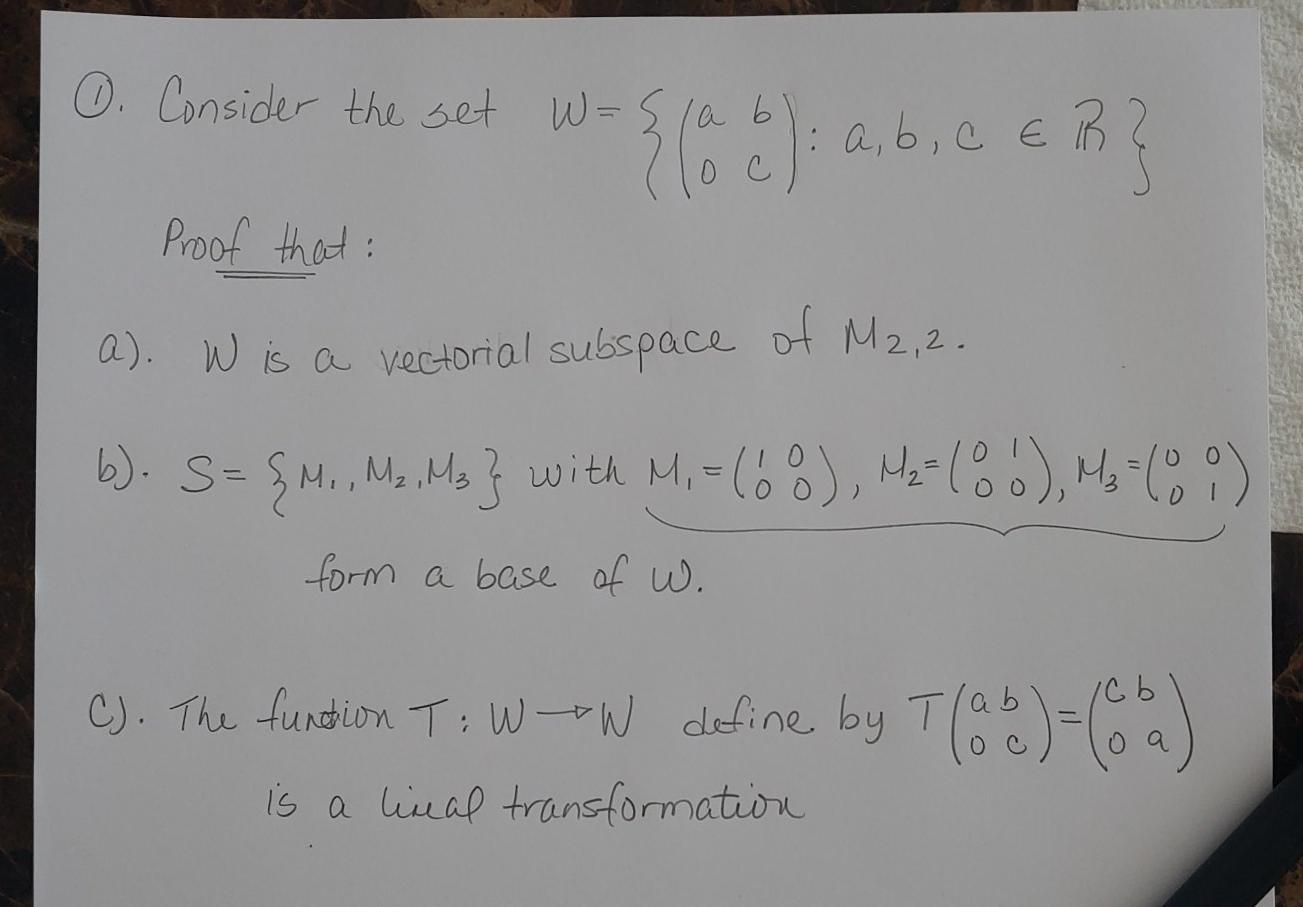 ①. Consider the set W = {(a b
0 c) : a, b, c ∈ ℝ}
Proof that :
a). W is a vectorial subspace of M2,2.
b). S = {M1, M2, M3} with M1 = (1 0
0 0), M2 = (0 1
0 0), M3 = (0 0
0 1)
form a base of W.
C). The function T : W → W define by T(a b
0 c) = (c b
0 a)
is a lineal transformation